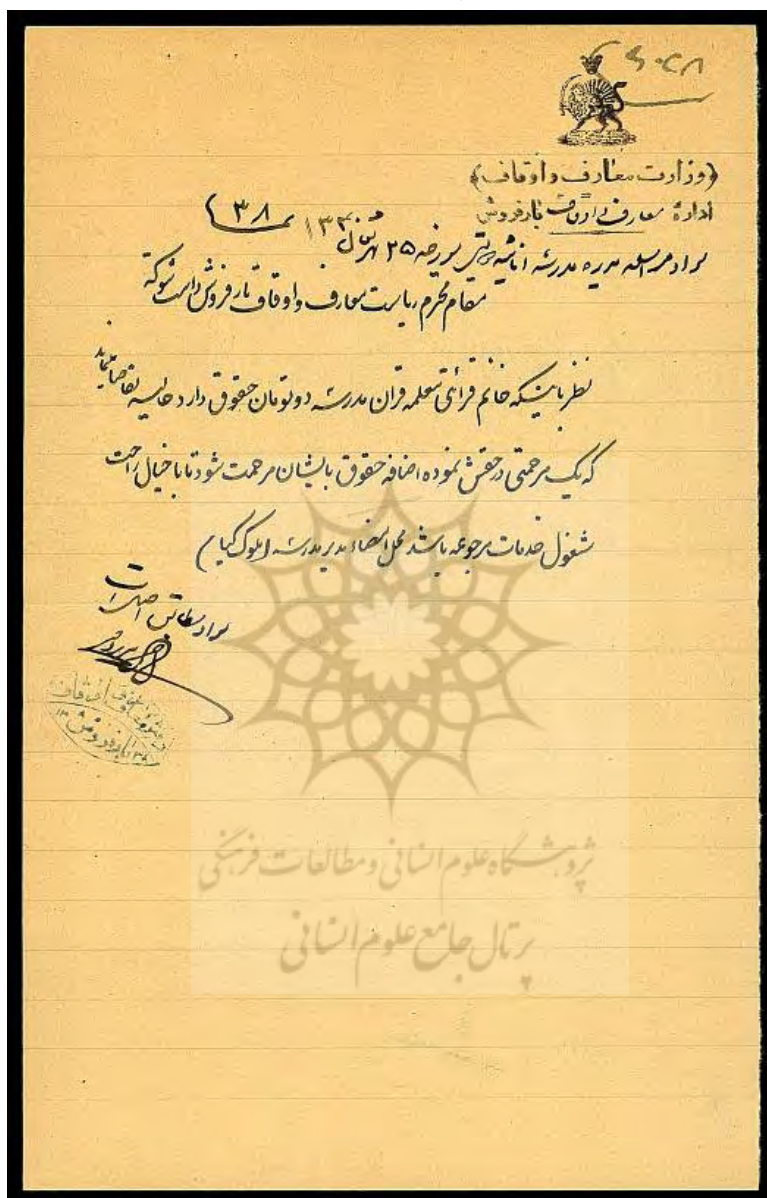 ﴿وزارت معارف و اوقاف﴾
ادارهٔ معارف و اوقاف بارفروش
سواد مراسله مدیره مدرسه اناثیه مورخه ۲۵ ۱۳۸
مقام محترم ریاست معارف و اوقاف بارفروش دامت شوکته
نظر باینکه خانم قرائتی متعلمه قران مدرسه دو تومان حقوق دارد حالیه تقاضا مینماید
که یک مرحمتی در حقش نموده اضافه حقوق بایشان مرحمت شود تا با خیال راحت
مشغول خدمات مرجوعه باشد محل امضاء مدیر مدرسه (ملوک کیا)
سواد مطابق اصل است
بارفروش
پژوهشگاه علوم انسانی و مطالعات فرهنگی
پرتال جامع علوم انسانی